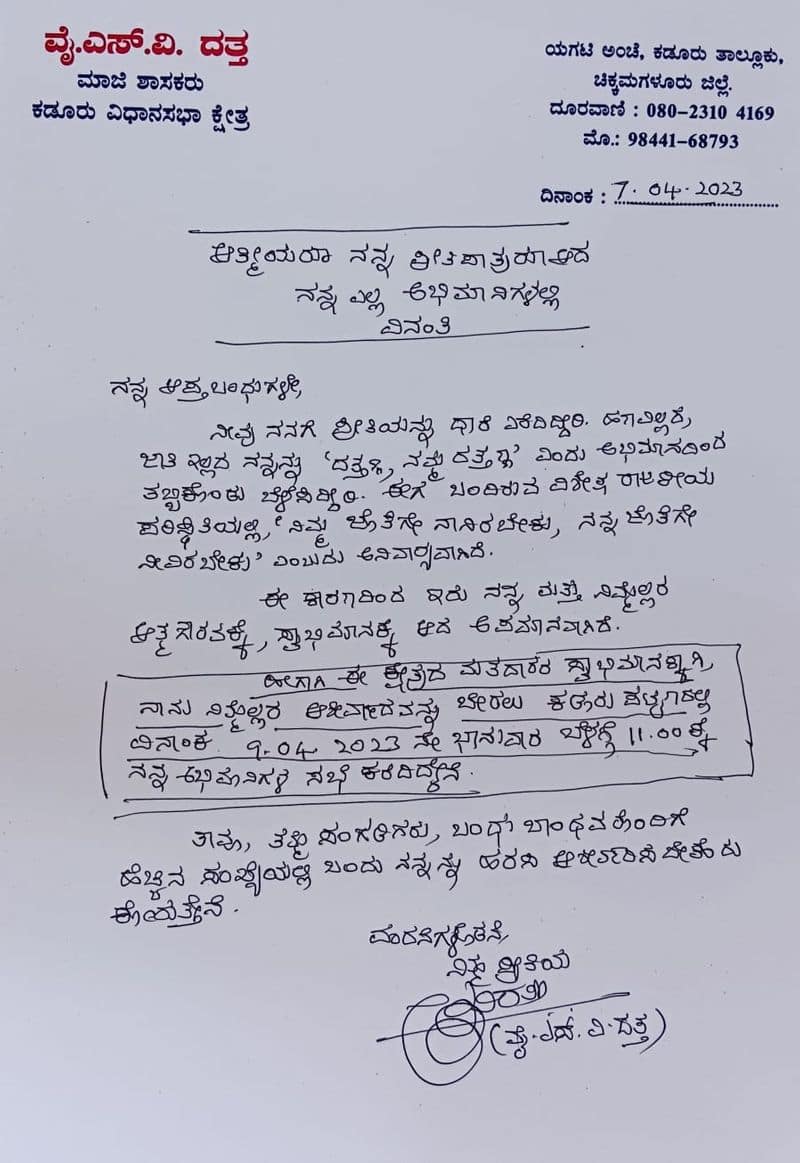 ವೈ.ಎಸ್.ವಿ. ದತ್ತ
ಮಾಜಿ ಶಾಸಕರು
ಕಡೂರು ವಿಧಾನಸಭಾ ಕ್ಷೇತ್ರ
ಯಗಟಿ ಅಂಚೆ, ಕಡೂರು ತಾಲ್ಲೂಕು,
ಚಿಕ್ಕಮಗಳೂರು ಜಿಲ್ಲೆ.
ದೂರವಾಣಿ : 080-2310 4169
ಮೊ.: 98441-68793
ದಿನಾಂಕ : 7.04.2023
ಆತ್ಮೀಯರೂ ನನ್ನ ಪ್ರೀತಿಪಾತ್ರರೂ ಆದ
ನನ್ನ ಎಲ್ಲ ಅಭಿಮಾನಿಗಳಲ್ಲಿ
ವಿನಂತಿ
ನನ್ನ ಆಪ್ತಬಂಧುಗಳೇ,
ನೀವು ನನಗೆ ಪ್ರೀತಿಯನ್ನು ಧಾರೆ ಎರೆದಿದ್ದೀರಿ. ಹಣವಿಲ್ಲದ,
ಜಾತಿ ಇಲ್ಲದ ನನ್ನನ್ನು 'ದತ್ತಣ್ಣ, ನಮ್ಮ ದತ್ತಣ್ಣ' ಎಂದು ಅಭಿಮಾನದಿಂದ
ತಬ್ಬಿಕೊಂಡು ಬೆಳೆಸಿದ್ದೀರಿ. ಈಗ ಬಂದಿರುವ ವಿಶೇಷ ರಾಜಕೀಯ
ಪರಿಸ್ಥಿತಿಯಲ್ಲಿ, 'ನಿಮ್ಮ ಜೊತೆಗೇ ನಾನಿರಬೇಕು, ನನ್ನ ಜೊತೆಗೇ
ನೀವಿರಬೇಕು' ಎಂಬುದು ಅನಿವಾರ್ಯವಾಗಿದೆ.
ಈ ಕಾರಣದಿಂದ ಇದು ನನ್ನ ಮತ್ತು ನಿಮ್ಮೆಲ್ಲರ
ಆತ್ಮಗೌರವಕ್ಕೆ, ಸ್ವಾಭಿಮಾನಕ್ಕೆ ಆದ ಅಪಮಾನವಾಗಿದೆ.
ಹೀಗಾಗಿ ಈ ಕ್ಷೇತ್ರದ ಮತದಾರರ ಸ್ವಾಭಿಮಾನಕ್ಕಾಗಿ,
ನಾನು ನಿಮ್ಮೆಲ್ಲರ ಆಶೀರ್ವಾದವನ್ನು ಬೇಡಲು ಕಡೂರು ಪಟ್ಟಣದಲ್ಲಿ
ದಿನಾಂಕ 9.04.2023 ನೇ ಭಾನುವಾರ ಬೆಳಗ್ಗೆ 11.00 ಕ್ಕೆ
ನನ್ನ ಅಭಿಮಾನಿಗಳ ಸಭೆ ಕರೆದಿದ್ದೇನೆ.
ತಾವು, ತಮ್ಮ ಸಂಗಡಿಗರು, ಬಂಧು ಬಾಂಧವರೊಂದಿಗೆ
ಹೆಚ್ಚಿನ ಸಂಖ್ಯೆಯಲ್ಲಿ ಬಂದು ನನ್ನನ್ನು ಹರಸಿ ಆಶೀರ್ವದಿಸಬೇಕೆಂದು
ಕೋರುತ್ತೇನೆ.
ವಂದನೆಗಳೊಡನೆ,
ನಿಮ್ಮ ಪ್ರೀತಿಯ
(ವೈ.ಎಸ್.ವಿ.ದತ್ತ)